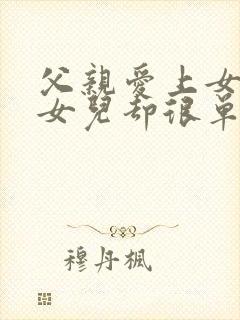 父親愛上女
女兒却很單
穆丹楓